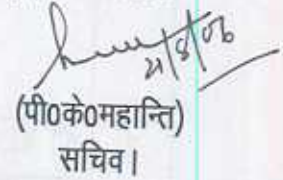 21/8/06
(पी0के0महान्ति)
सचिव।